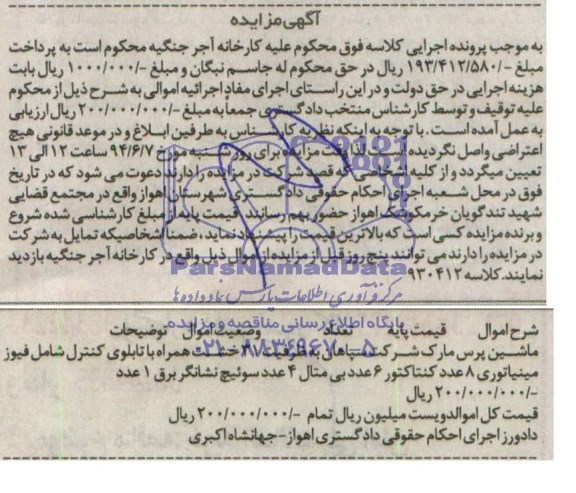 آگهی مزایده
به موجب پرونده اجرایی کلاسه فوق محکوم علیه کارخانه آجر جنگیه محکوم است به پرداخت
مبلغ -/۱۹۳/۴۱۲/۵۸۰ ریال در حق محکوم له جاسم نبگان و مبلغ -/۱۰۰۰/۰۰۰ ریال بابت
هزینه اجرایی در حق دولت و در این راستای اجرای مفاد اجرائیه اموالی به شرح ذیل از محکوم
علیه توقیف و توسط کارشناس منتخب دادگستری جمعا به مبلغ -/۲۰۰/۰۰۰/۰۰۰ ریال ارزیابی
به عمل آمده است. با توجه به اینکه نظریه کارشناس به طرفین ابلاغ و در موعد قانونی هیچ
اعتراضی واصل نگردیده است لذا وقت مزایده برای روز شنبه مورخ ۹۴/۶/۷ ساعت ۱۲ الی ۱۳
تعیین میگردد و از کلیه اشخاصی که قصد شرکت در مزایده را دارند دعوت می شود که در تاریخ
فوق در محل شعبه اجرای احکام حقوقی دادگستری شهرستان اهواز واقع در مجتمع قضایی
شهید تندگویان خرمکوشک اهواز حضور بهم رسانند. قیمت پایه از مبلغ کارشناسی شده شروع
و برنده مزایده کسی است که بالاترین قیمت را پیشنهاد نماید، ضمنا شخاصیکه تمایل به شرکت
در مزایده را دارند می توانند پنج روز قبل از مزایده از اموال ذیل واقع در کارخانه آجر جنگیه بازدید
نمایند. کلاسه ۹۳۰۴۱۲
ParsNamadData
مرکز فرآوری اطلاعات پارس نماد داده ها
پایگاه اطلاع رسانی مناقصه و مزایده
شرح اموال قیمت پایه تعداد وضعیت اموال توضیحات
ماشین پرس مارک شرکت سپاهان به ظرفیت خشت همراه با تابلوی کنترل شامل فیوز
۰۲۱-۸۸۳۴۹۶۷۰-۵
مینیاتوری ۸ عدد کنتاکتور ۶ عدد بی متال ۴ عدد سوئیچ نشانگر برق ۱ عدد
-/۲۰۰/۰۰۰/۰۰۰ ریال
قیمت کل اموال دویست میلیون ریال تمام -/۲۰۰/۰۰۰/۰۰۰ ریال
دادورز اجرای احکام حقوقی دادگستری اهواز-جهانشاه اکبری